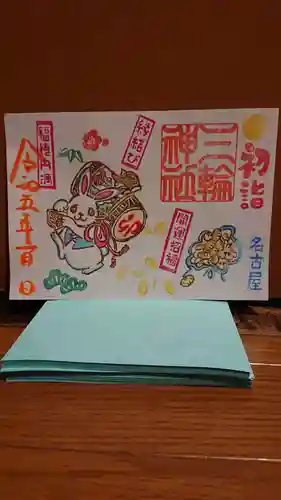 初詣
名古屋
三輪
神社
開運招福
縁結び
福徳円満
令和五年一月
日